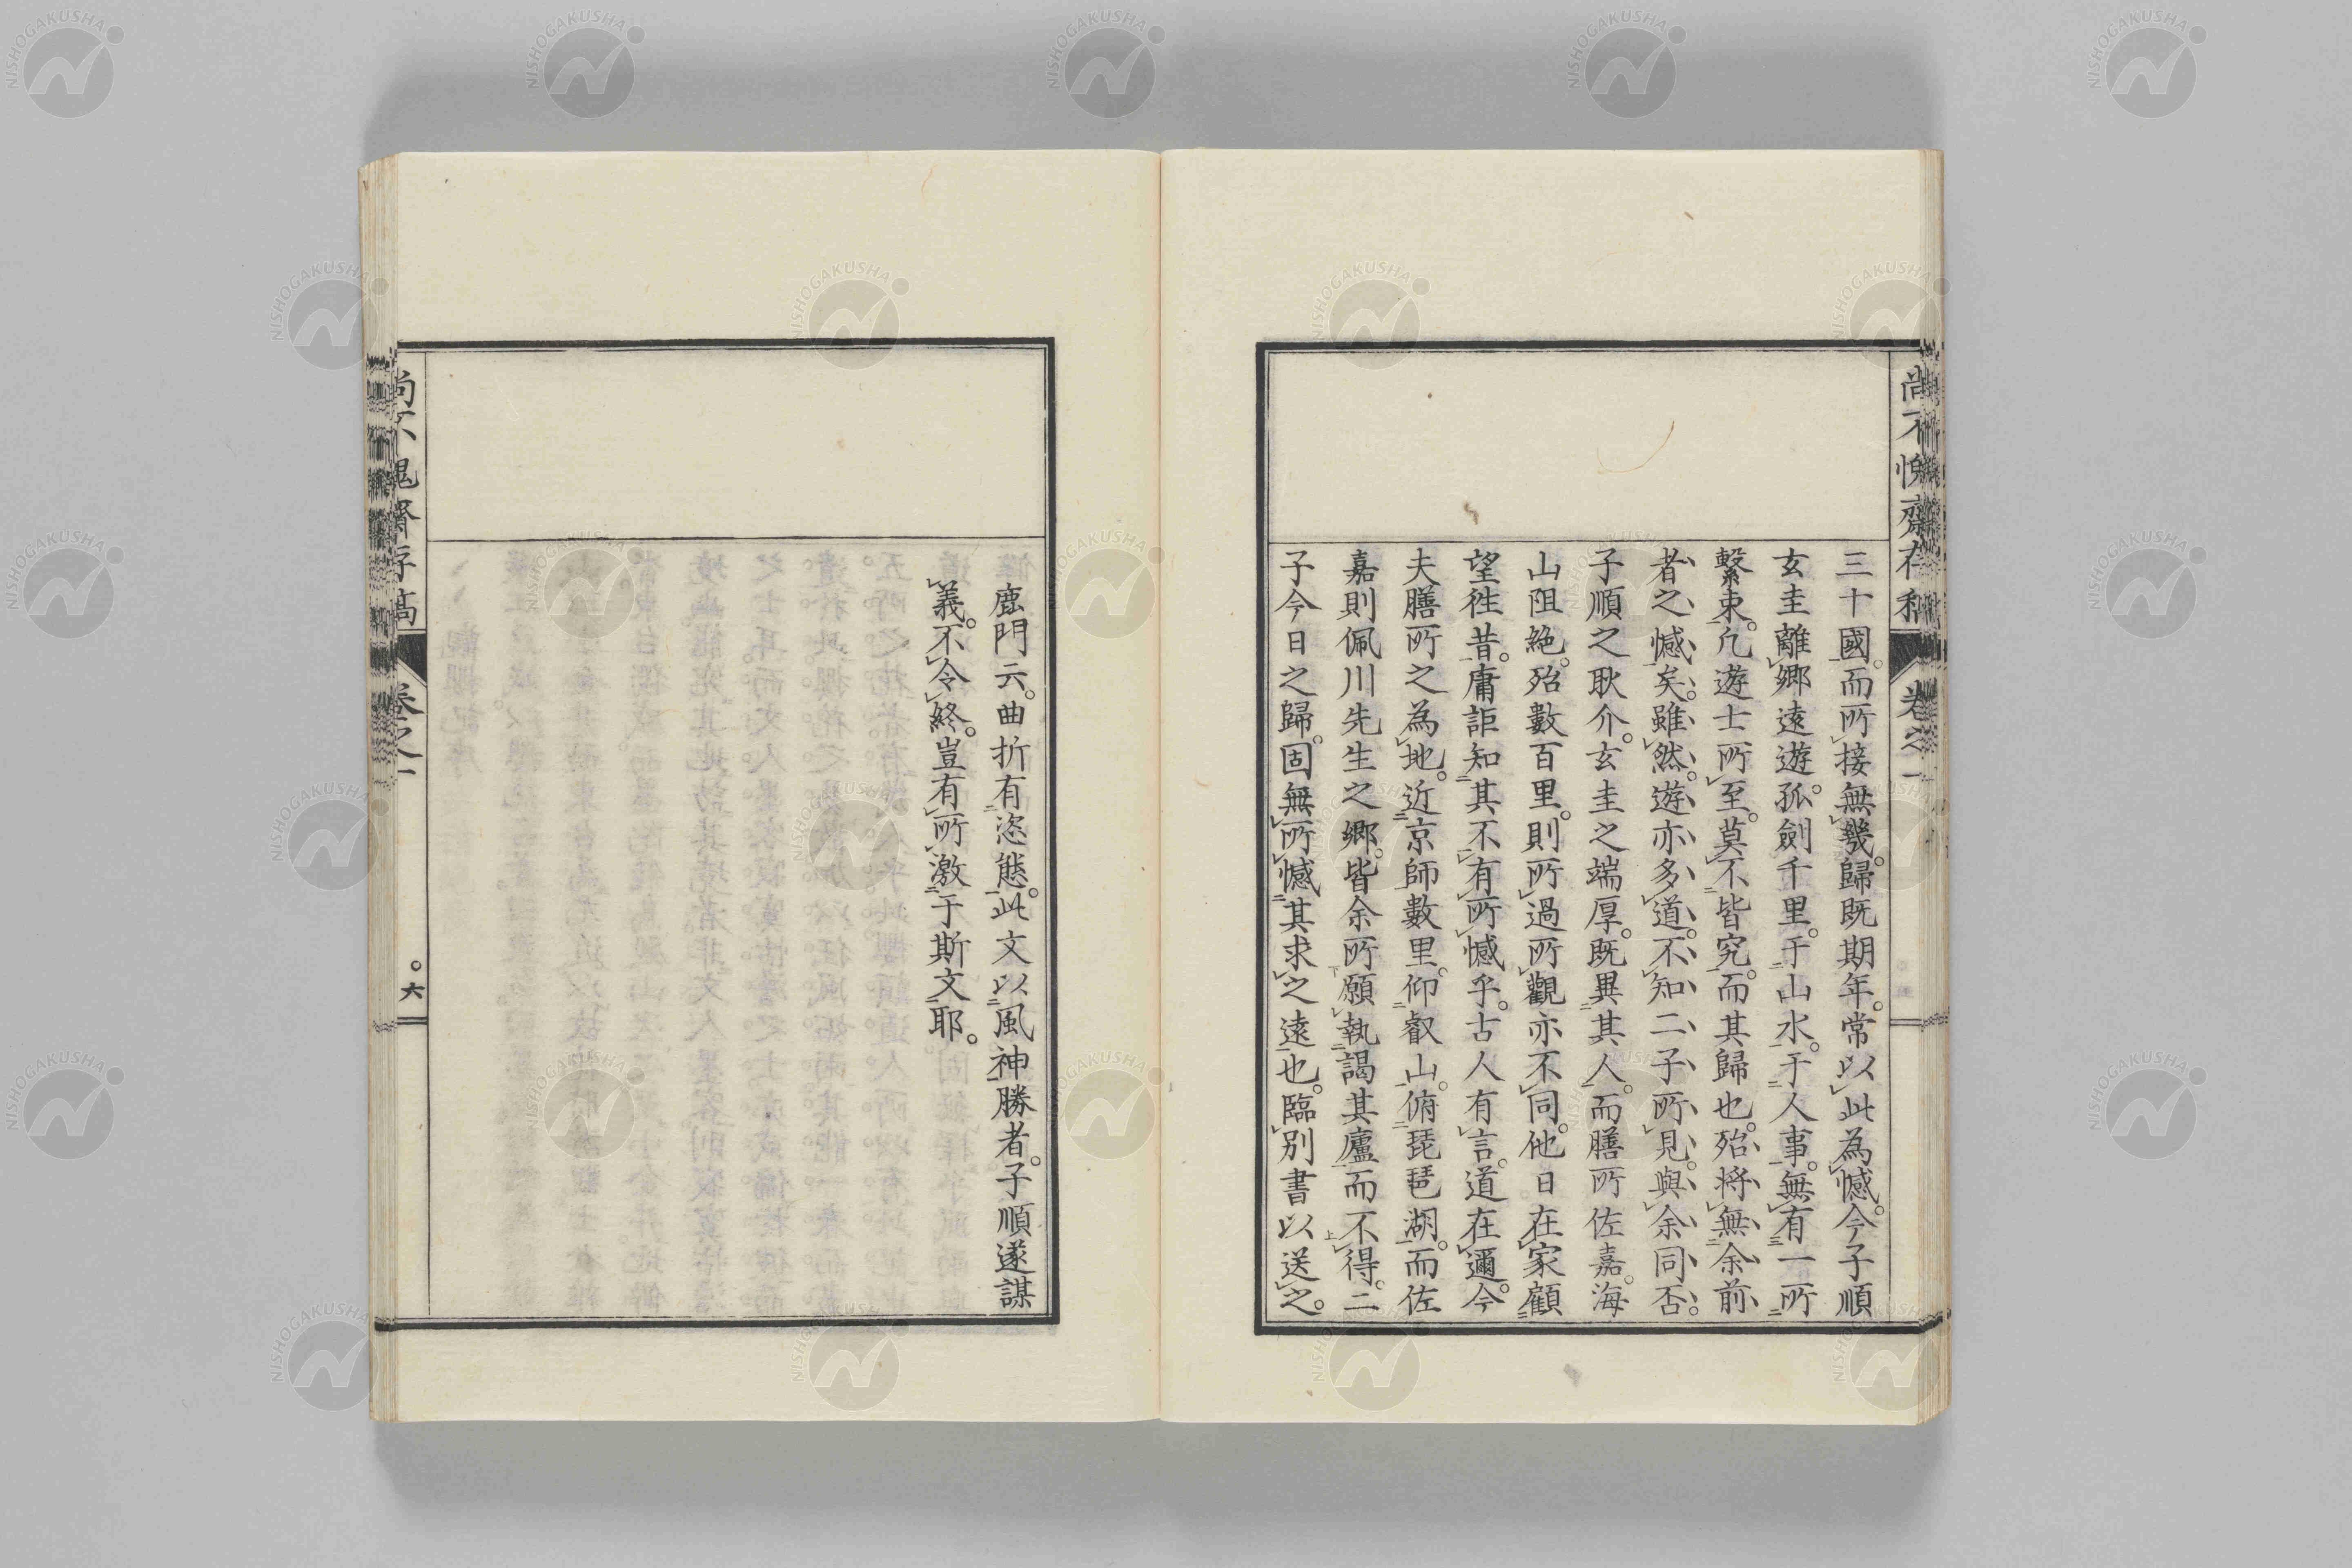 三十國。而所接無幾。歸既期年。常以此為憾。今子順
玄圭離郷遠遊。孤劍千里。于山水。于人事。無有一所
繫束。凢遊士所至。莫不皆究。而其歸也。殆將無余前
者之憾矣。雖然。遊亦多道。不知二子所見。與余同否。
子順之耿介。玄圭之端厚。既異其人。而膳所佐嘉。海
山阻絶。殆數百里。則所過所觀亦不同。他日在家顧
望徃昔。庸詎知其不有所憾乎。古人有言。道在邇。今
夫膳所之為地。近京師數里。仰叡山。俯琵琶湖。而佐
嘉則佩川先生之郷。皆余所願執謁其廬而不得。二
子今日之歸。固無所憾其求之遠也。臨別書以送之。
鹿門云。曲折有恣態。此文以風神勝者。子順遂謀
義。不令終。豈有所激于斯文耶。
尚不愧齋存稿
卷之一
六
NISHOGAKUSHA